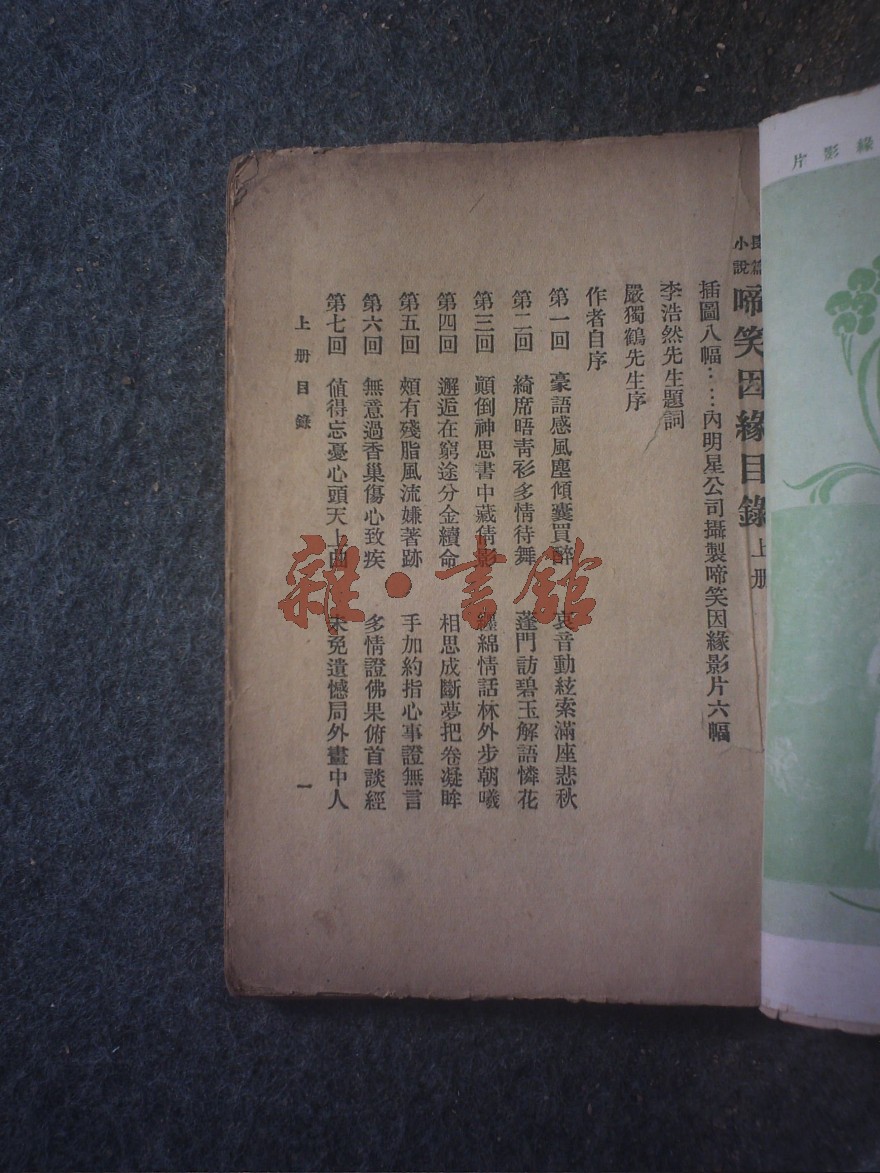 緣影片
長篇小說 啼笑因緣目錄 上册
插圖八幅⋯⋯內明星公司攝製啼笑因緣影片六幅
李浩然先生題詞
嚴獨鶴先生序
作者自序
第一回 豪語感風塵傾囊買醉 哀音動絃索滿座悲秋
第二回 綺席晤青衫多情待舞 蓬門訪碧玉解語憐花
第三回 顚倒神思書中藏倩影 纏綿情話林外步朝曦
第四回 邂逅在窮途分金續命 相思成斷夢把卷凝眸
第五回 頰有殘脂風流嫌著跡 手加約指心事證無言
第六回 無意過香巢傷心致疾 多情證佛果俯首談經
第七回 値得忘憂心頭天上曲 未免遺憾局外畫中人
上册目錄 一
雜·書館